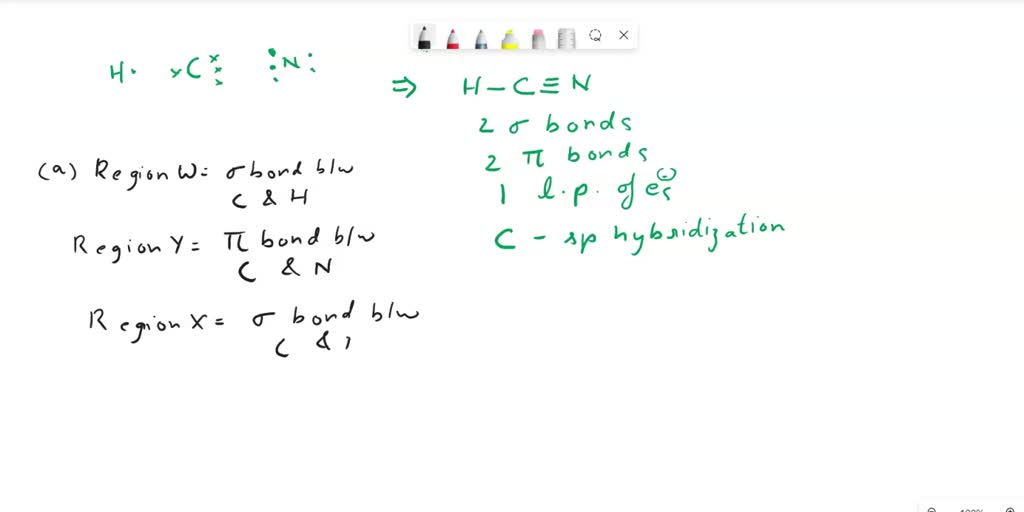 H· ×C :N:
⇒ H – C ≡ N
2 σ bonds
2 π bonds
1 l.p. of e⁻s
C – sp hybridization
(a) Region W = σ bond b/w
C & H
Region Y = π bond b/w
C & N
Region X = σ bond b/w
C &